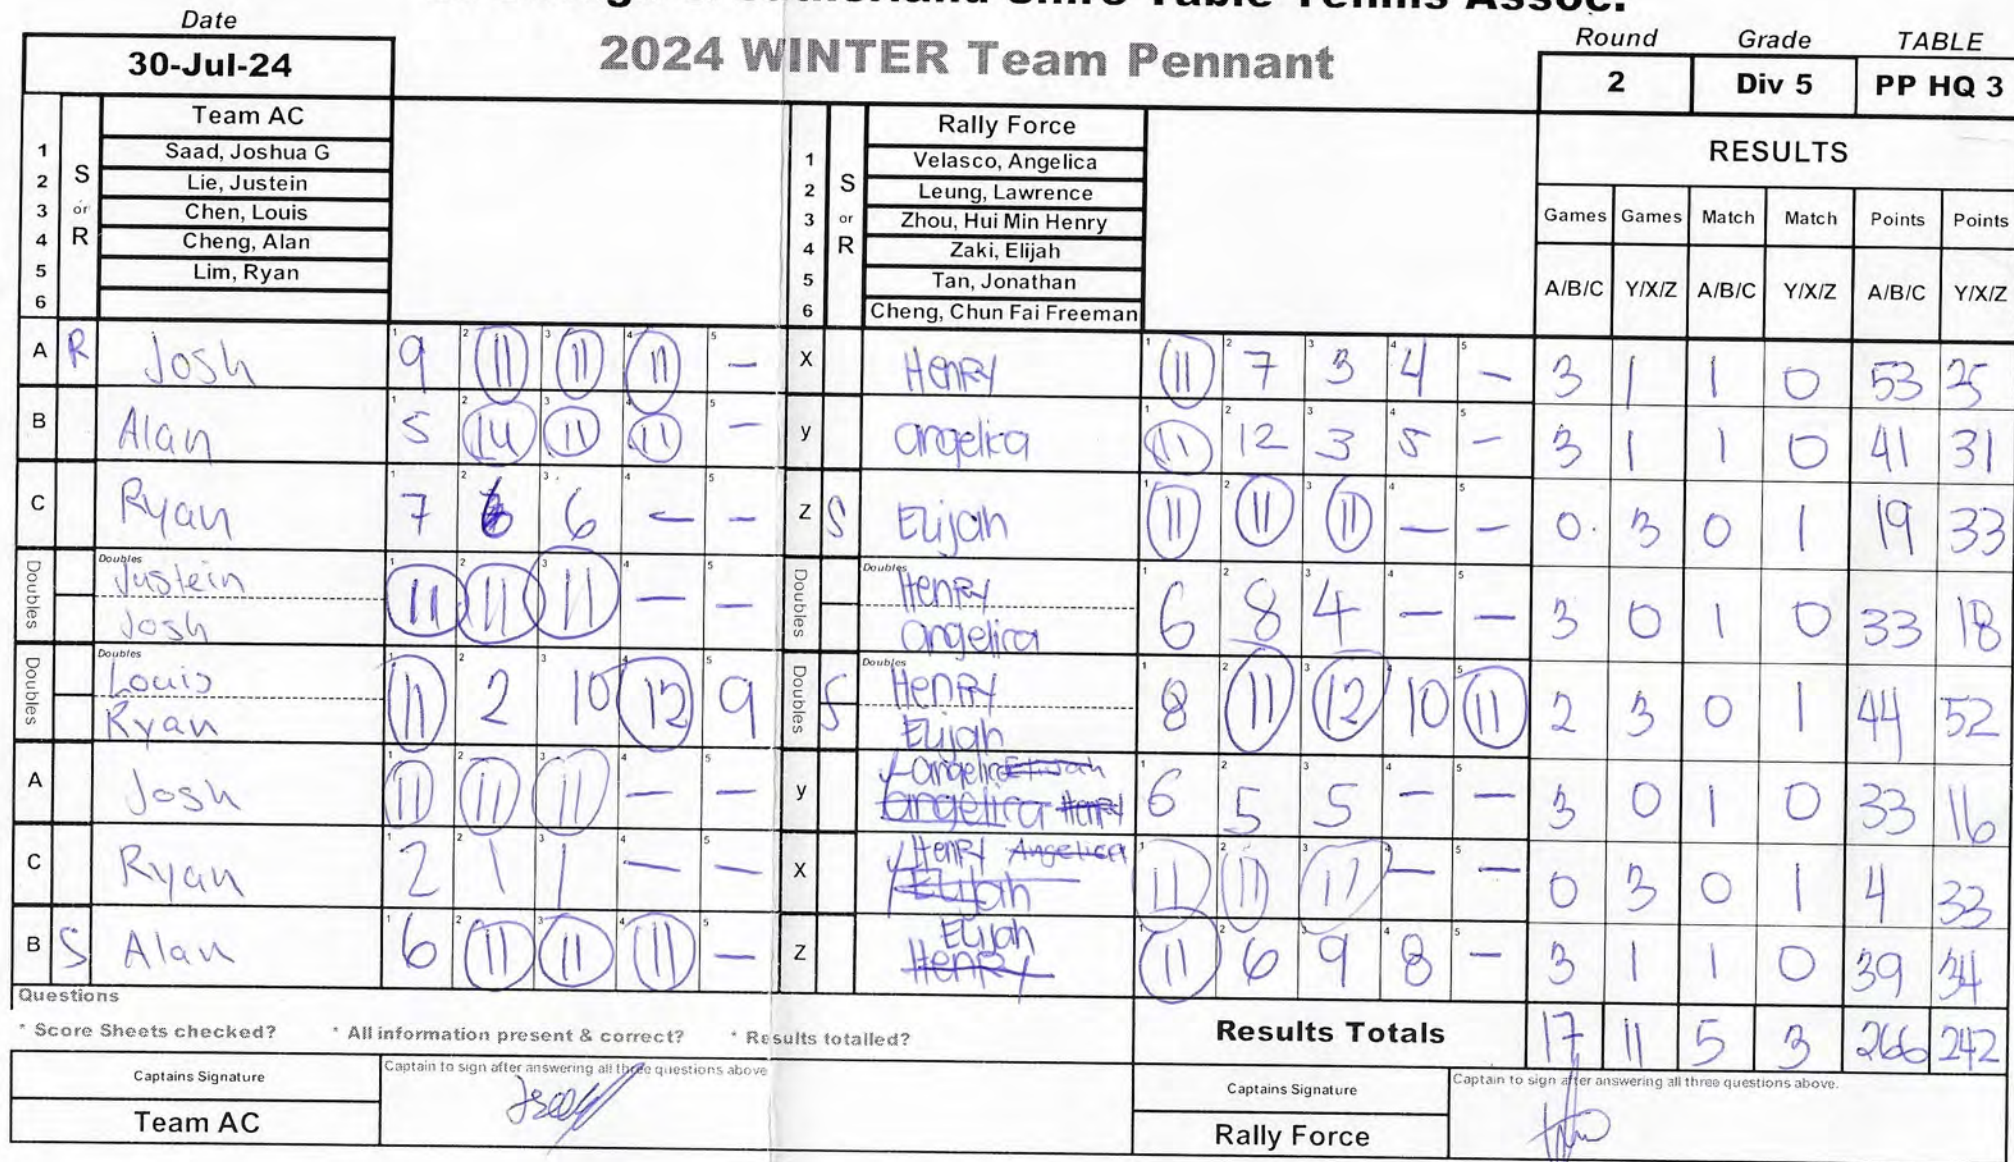 Sutherland Shire Table Tennis Assoc.
Date
30-Jul-24
2024 WINTER Team Pennant
Round Grade TABLE
2 Div 5 PP HQ 3
S or R
Team AC
1 Saad, Joshua G
2 Lie, Justein
3 Chen, Louis
4 Cheng, Alan
5 Lim, Ryan
6
S or R
Rally Force
1 Velasco, Angelica
2 Leung, Lawrence
3 Zhou, Hui Min Henry
4 Zaki, Elijah
5 Tan, Jonathan
6 Cheng, Chun Fai Freeman
RESULTS
Games Games Match Match Points Points
A/B/C Y/X/Z A/B/C Y/X/Z A/B/C Y/X/Z
A R Josh 1 9 2 11 3 11 4 11 5 — X Henry 1 11 2 7 3 3 4 4 5 — 3 1 1 0 53 25
B Alan 1 5 2 14 3 11 4 11 5 — y angelica 1 11 2 12 3 3 4 5 5 — 3 1 1 0 41 31
C Ryan 1 7 2 6 3 6 4 — 5 — Z S Elijah 1 11 2 11 3 11 4 — 5 — 0 3 0 1 19 33
Doubles Doubles Justein Josh 1 11 2 11 3 11 4 — 5 — Doubles Doubles Henry angelica 1 6 2 8 3 4 4 — 5 — 3 0 1 0 33 18
Doubles Doubles Louis Ryan 1 11 2 2 3 10 4 12 5 9 Doubles S Doubles Henry Elijah 1 8 2 11 3 12 4 10 5 11 2 3 0 1 44 52
A Josh 1 11 2 11 3 11 4 — 5 — y ✓ angelica Elijah angelica Henry 1 6 2 5 3 5 4 — 5 — 3 0 1 0 33 16
C Ryan 1 2 2 1 3 1 4 — 5 — X ✓ Henry Angelica Elijah 1 11 2 11 3 11 4 — 5 — 0 3 0 1 4 33
B S Alan 1 6 2 11 3 11 4 11 5 — Z Elijah Henry 1 11 2 6 3 9 4 8 5 — 3 1 1 0 39 34
Questions
* Score Sheets checked? * All information present & correct? * Results totalled?
Results Totals 17 11 5 3 266 242
Captains Signature
Captain to sign after answering all three questions above
Team AC
Captains Signature
Captain to sign after answering all three questions above.
Rally Force